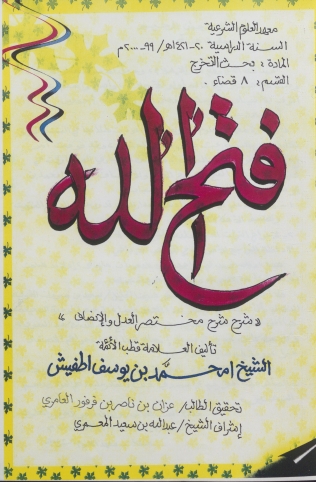 معهد العلوم الشرعية
السنة الدراسية ٢٠-١٤٢١هـ/ ٩٩-٢٠٠٠م
المادة : بحث التخرج
القسم : ٨ قضاء .
فتح الله
« شرح شرح مختصر العدل والإنصاف »
تأليف العلامة قطب الأئمة
الشيخ امحمد بن يوسف اطفيش
تحقيق الطالب/ عزان بن ناصر بن فرفور العامري
إشراف الشيخ/ عبدالله بن سعيد المعمري